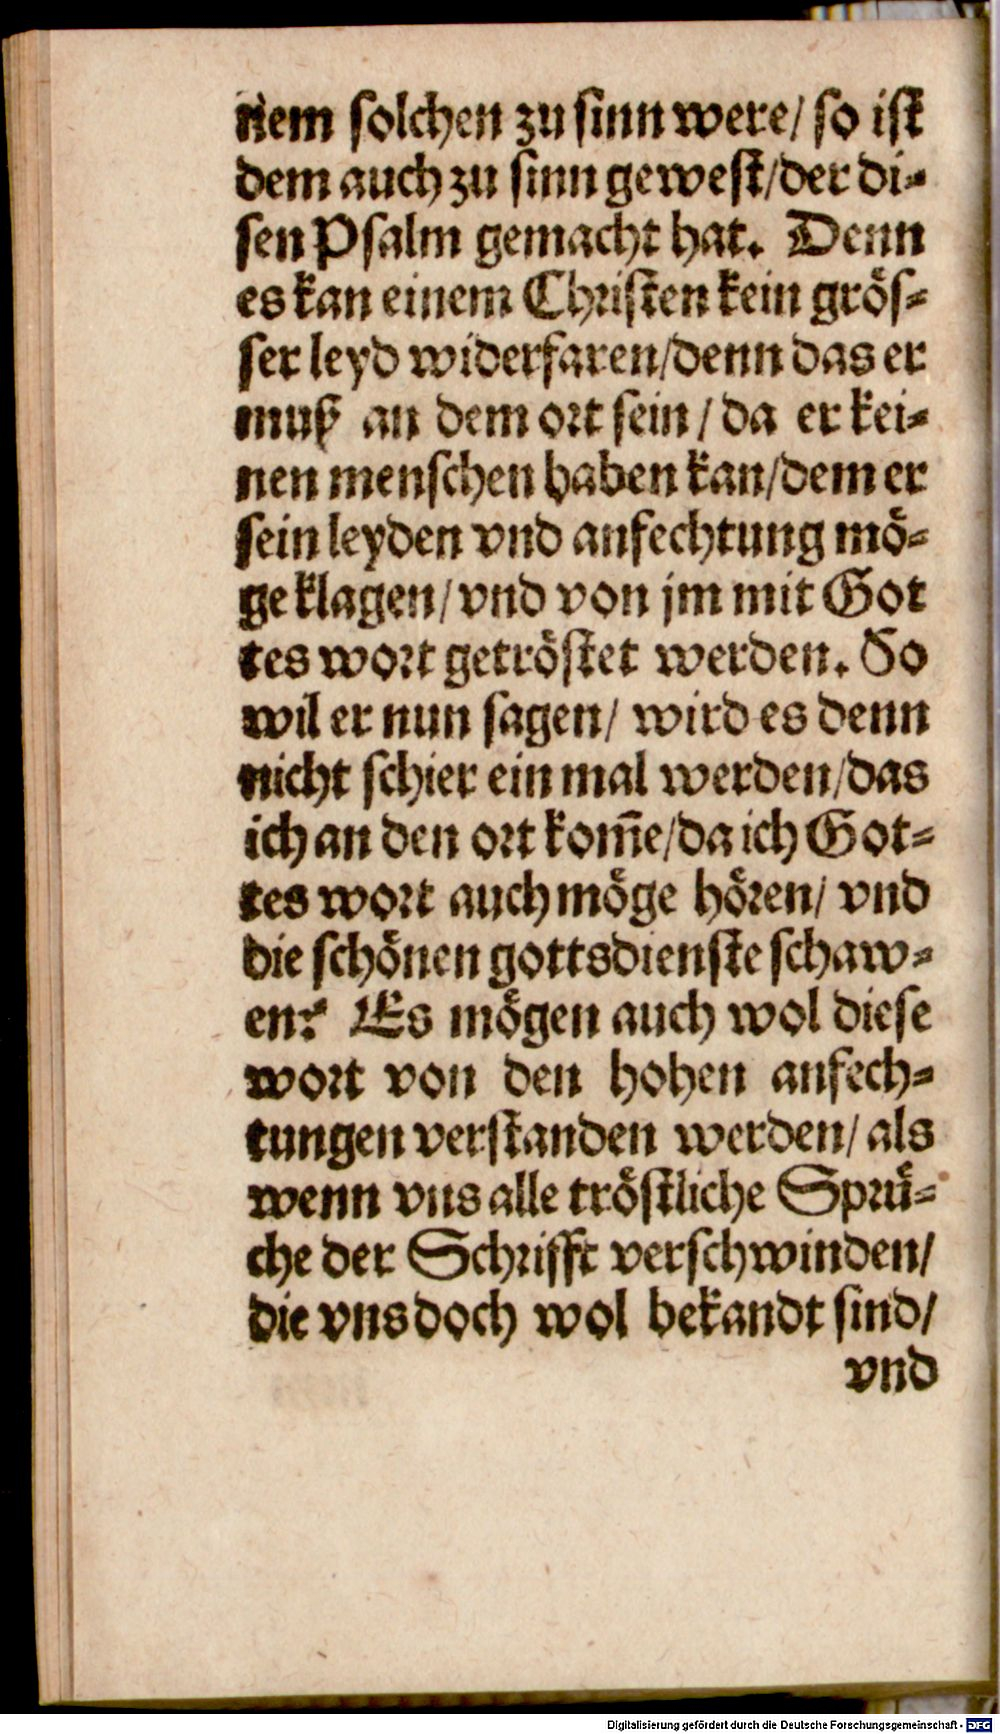 nem solchen zu sinn were/ so ist
dem auch zu sinn gewest/der di⸗
sen Psalm gemacht hat. Denn
es kan einem Christen kein grös⸗
ser leyd widerfaren/denn das er
muß an dem ort sein/ da er kei⸗
nen menschen haben kan/dem er
sein leyden vnd anfechtung mö⸗
ge klagen/vnd von jm mit Got
tes wort getröstet werden. So
wil er nun sagen/ wird es denn
nicht schier ein mal werden/das
ich an den ort kom̄e/da ich Got⸗
tes wort auch möge hören/ vnd
die schönen gottsdienste schaw⸗
en? Es mögen auch wol diese
wort von den hohen anfech⸗
tungen verstanden werden/ als
wenn vns alle tröstliche Sprü⸗
che der Schrifft verschwinden/
die vns doch wol bekandt sind/
vnd
Digitalisierung gefördert durch die Deutsche Forschungsgemeinschaft - DFG